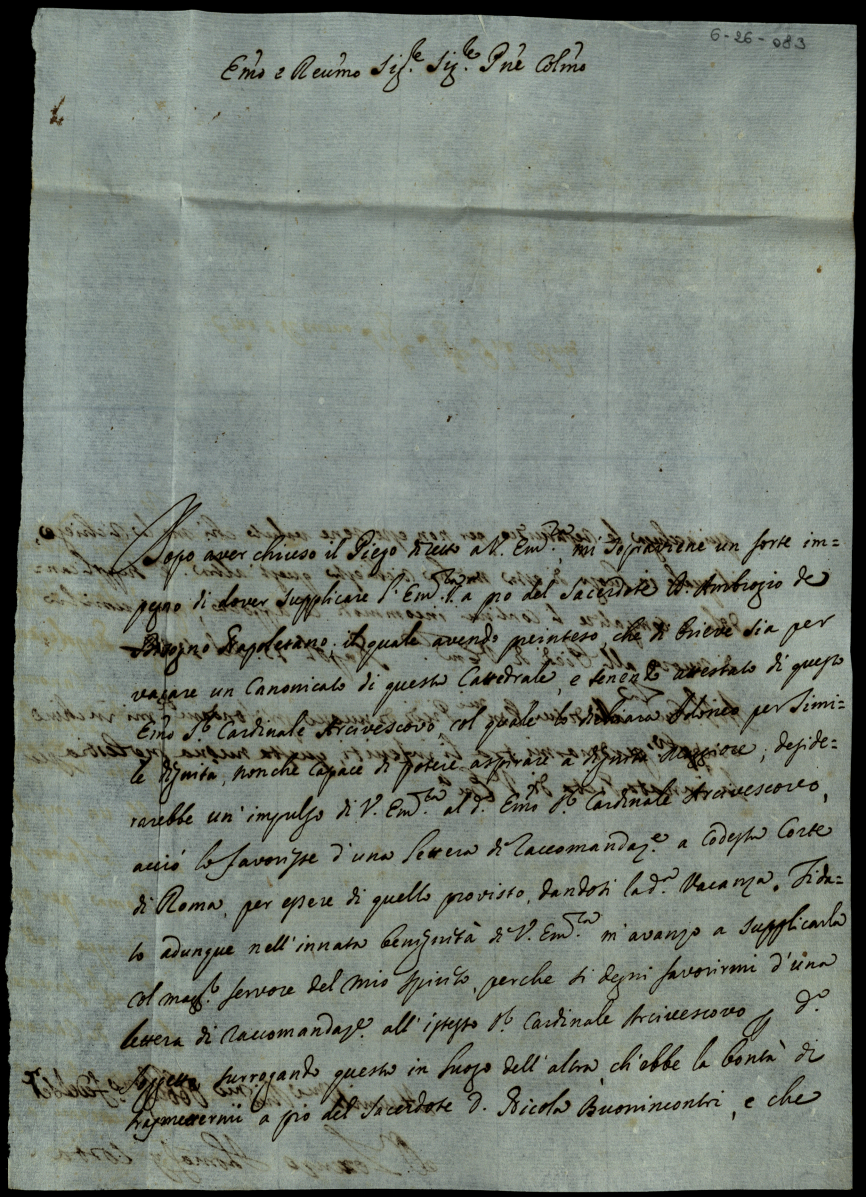 6-26-083
Emo e Reumo Sig.re Sig.re Pne Colmo
Dopo aver chiuso il Piego diretto a V. Em.za, mi sopraviene un forte im=
pegno di dover supplicare l'Em.za V.a a pro del Sacerdote D. Ambrogio de
Napoletano, il quale avendo preinteso che di brieve sia per
vacare un Canonicato di questa Cattedrale, e tenendo attestato di questo
Emo S.r Cardinale Arcivescovo col quale lo dichiara Idoneo per simi=
le dignità, nonche capace di potere aspirare a dignità Maggiore, deside=
rarebbe un'impulso di V. Em.za al d.o Emo S.r Cardinale Arcivescovo,
acciò lo favorisse d'una lettera di raccomandaz.e a Codesta Corte
di Roma, per essere di quello provisto, dandosi la d.a Vacanza. Fida=
to adunque nell'innata benignità di V. Em.za m'avanzo a supplicarla
col magg.r fervore del mio spirito, perche si degni favorirmi d'una
lettera di raccomandaz.e all'istesso S.r Cardinale Arcivescovo p d.o
soggetto surrogando questa in luogo dell'altra ch'ebbe la bontà di
trasmettermi a pro del Sacerdote D. Nicola Buonincontri, e che